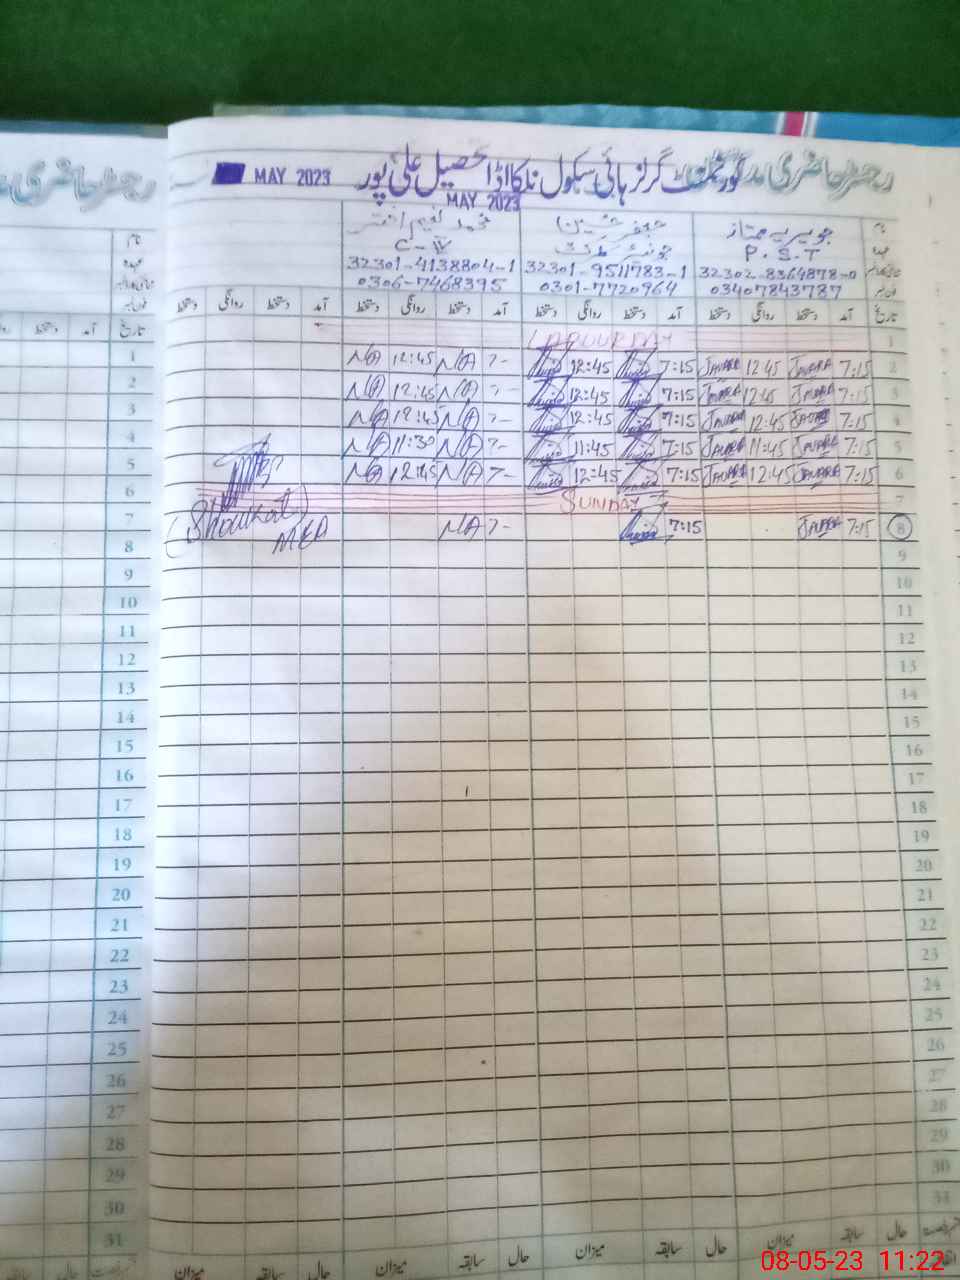 رجسٹر حاضری
رجسٹر حاضری مدرسین گورنمنٹ گرلز ہائی سکول نلکا اڈا تحصیل علی پور MAY 2023
MAY 2023
نام جویریہ ممتاز جعفر حسین محمد نعیم اختر
عہدہ P.S.T جونیئر کلرک C-IV
32302-8364878-0 32301-9511783-1 32301-4138804-1
03407843787 0301-7720964 0306-7468395
تاریخ آمد دستخط روانگی دستخط آمد دستخط روانگی دستخط آمد دستخط روانگی دستخط آمد دستخط روانگی دستخط
1 LABOUR DAY
2 7:15 JAVARIA 12:45 7:15 12:45 7- N(A) 12:45 N(A)
3 7:15 JAVARIA 12:45 7:15 12:45 7- N(A) 12:45 N(A)
4 7:15 JAVARIA 12:45 7:15 12:45 7- N(A) 12:45 N(A)
5 7:15 JAVARIA 11:45 7:15 11:45 7- N(A) 11:30 N(A)
6 7:15 JAVARIA 12:45 7:15 12:45 7- N(A) 12:45 N(A)
7 SUNDAY
8 7:15 JAVARIA 7:15 7- N(A)
(Shoukat)
MEA
9
10
11
12
13
14
15
16
17
18
19
20
21
22
23
24
25
26
27
28
29
30
31
حال سابقہ میزان حال سابقہ میزان حال سابقہ میزان حال سابقہ میزان
1
2
3
4
5
6
7
8
9
10
11
12
13
14
15
16
17
18
19
20
21
22
23
24
25
26
27
28
29
30
31
08-05-23 11:22